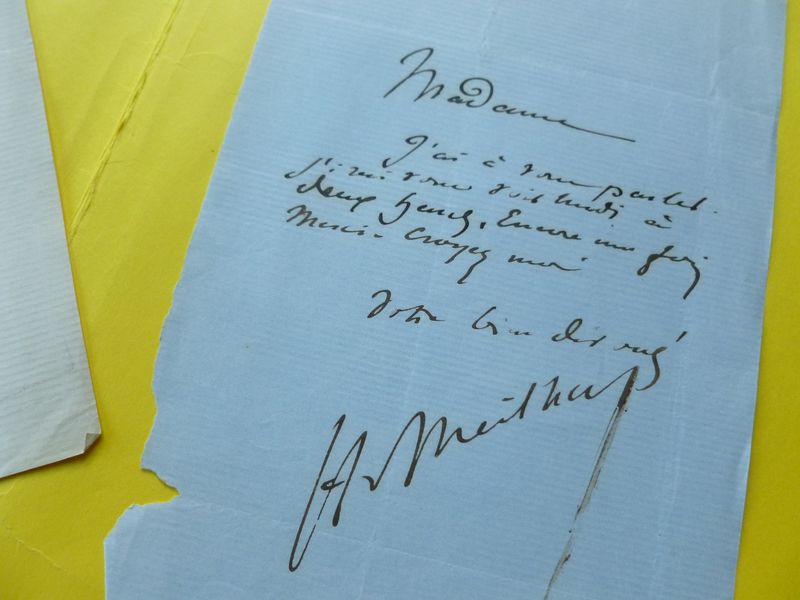 Madame
J'ai à vous parler.
J'irai vous voir lundi à
deux heures. Encore une fois
merci. Croyez moi
Votre bien dévoué
H. Meilhac